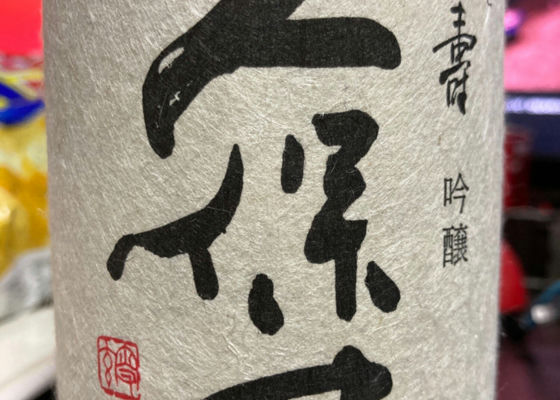 壽 吟醸
久保